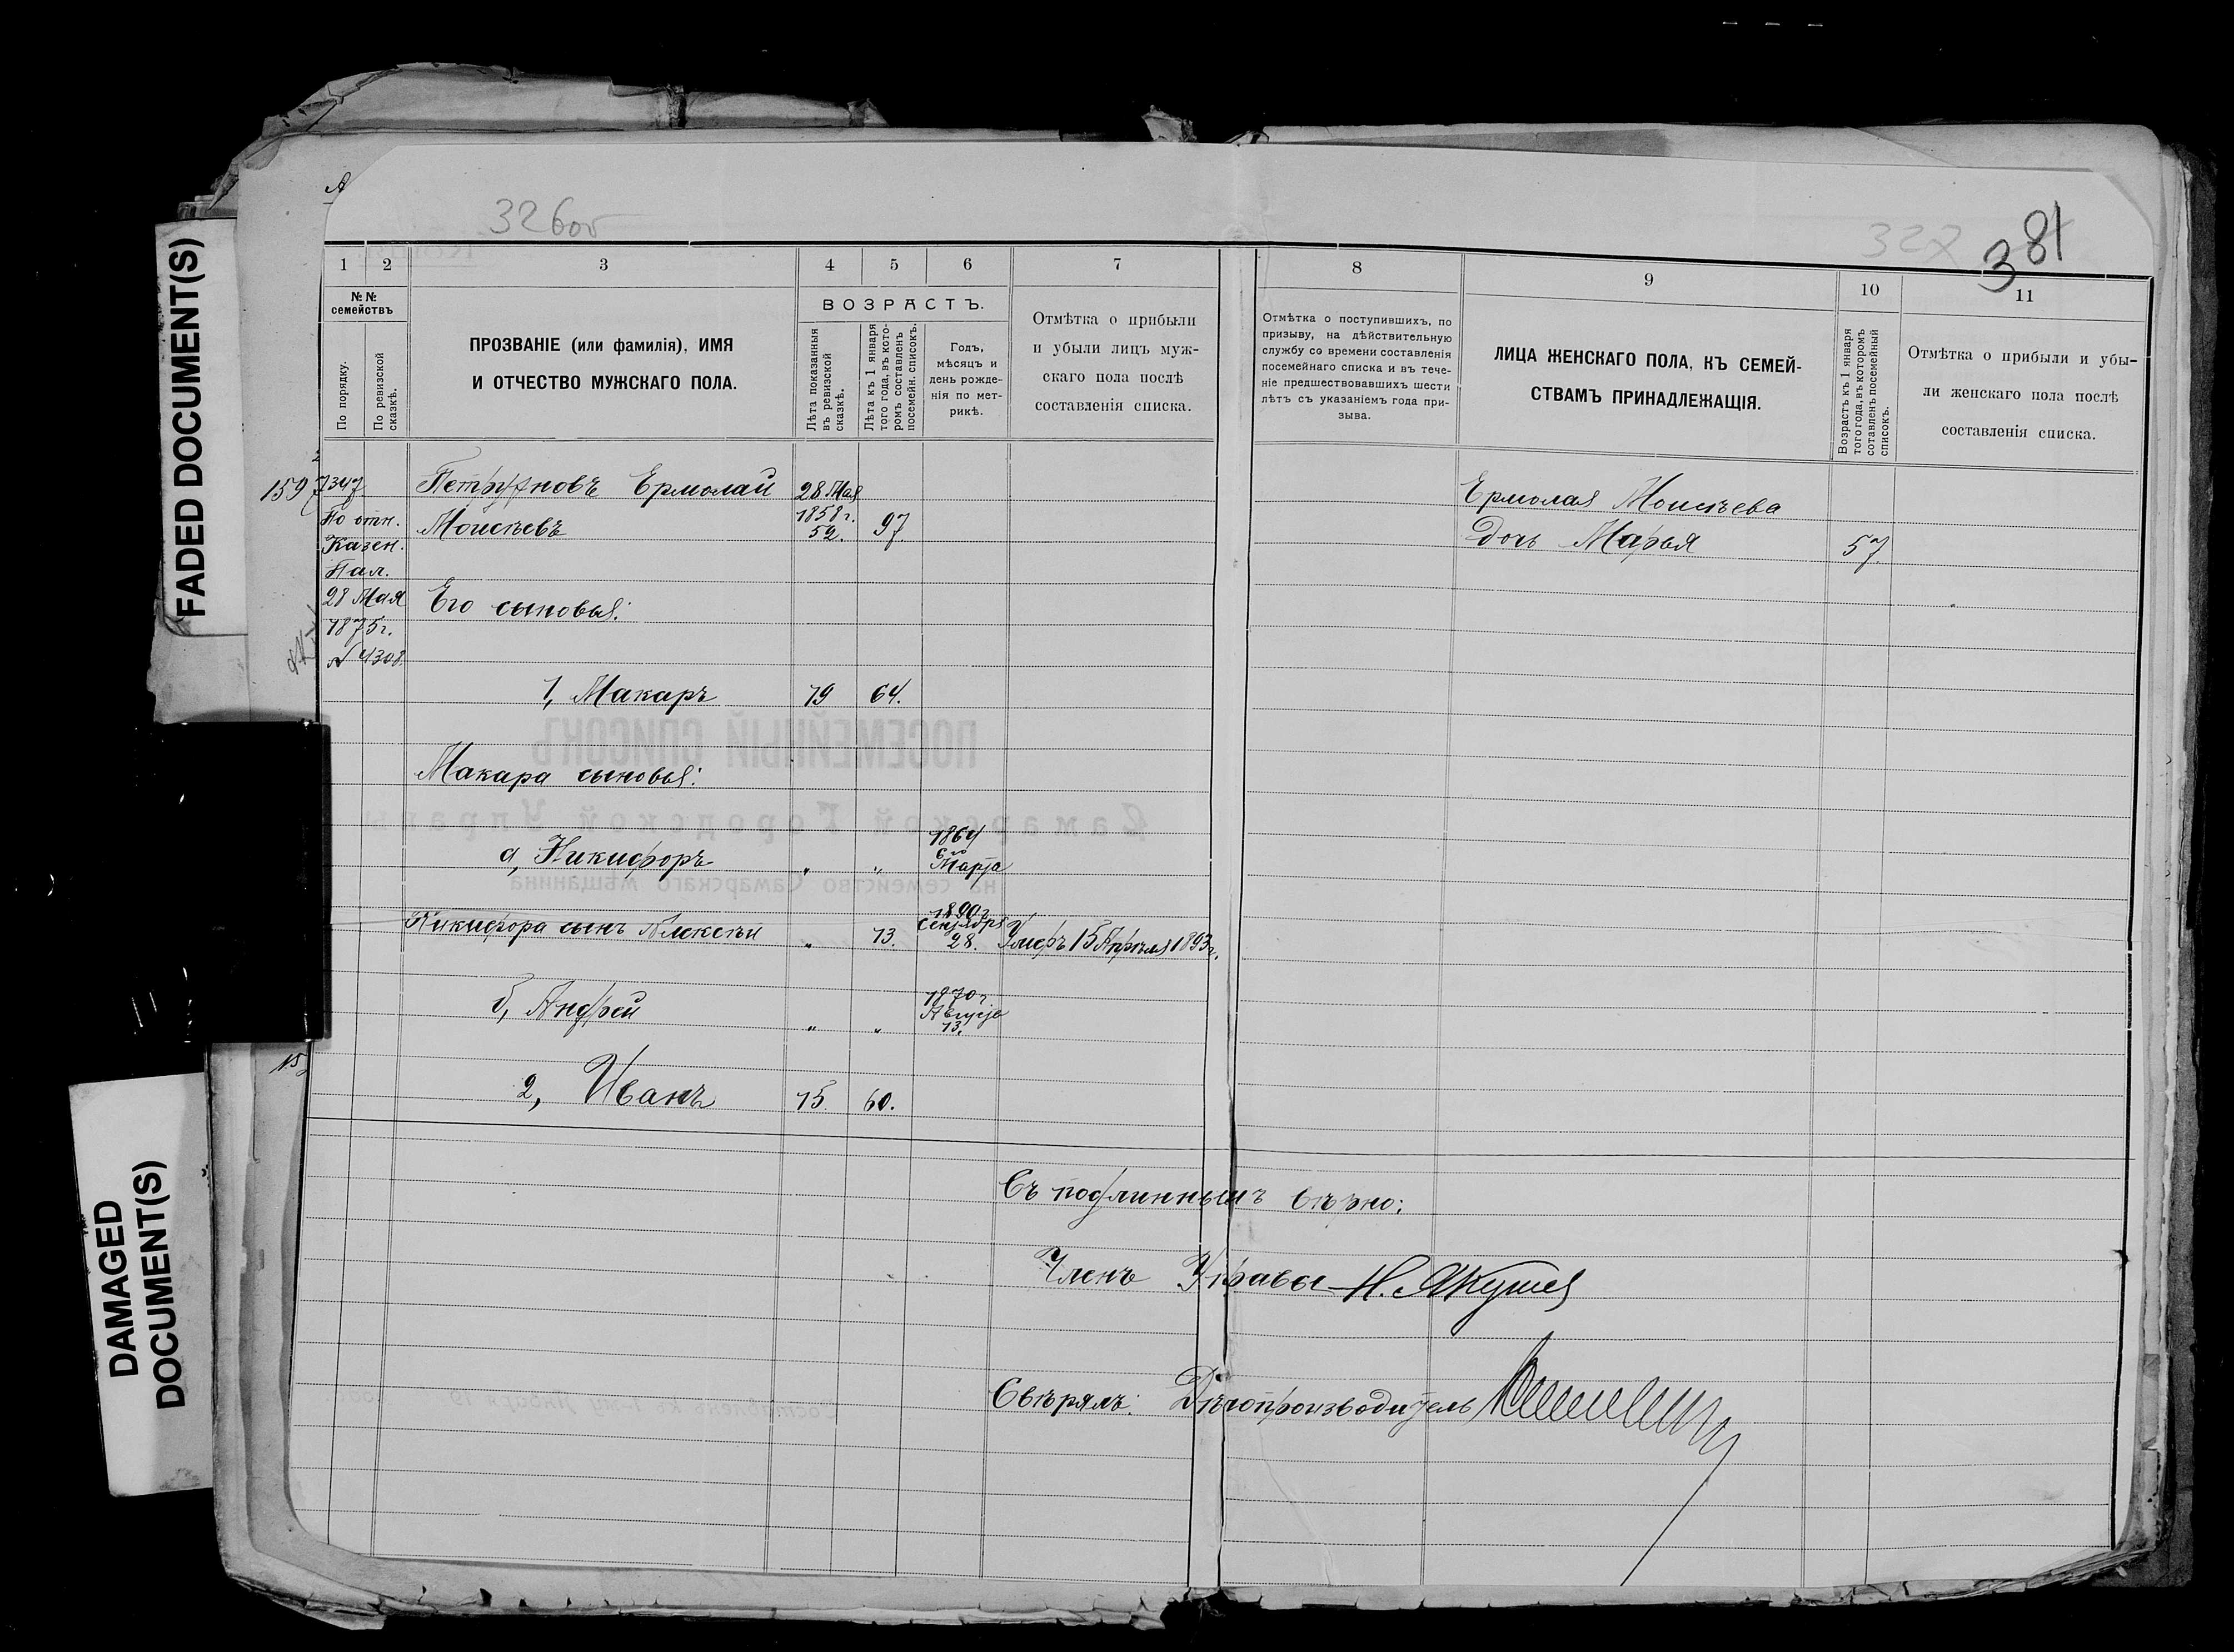 FADED DOCUMENT(S)
DAMAGED
DOCUMENT(S)
326об
327
381
1
2
3
4
5
6
7
8
9
10
11
№ №
семействъ
По порядку.
По ревизской
сказкѣ.
ПРОЗВАНІЕ (или фамилія), ИМЯ
И ОТЧЕСТВО МУЖСКАГО ПОЛА.
ВОЗРАСТЪ.
Лѣта показанныя
въ ревизской
сказкѣ.
Лѣта къ 1 января
того года, въ кото-
ромъ составленъ
посемейн. списокъ.
Годъ,
мѣсяцъ и
день рожде-
нія по мет-
рикѣ.
Отмѣтка о прибыли
и убыли лицъ муж-
скаго пола послѣ
составленія списка.
Отмѣтка о поступившихъ, по
призыву, на дѣйствительную
службу со времени составленія
посемейнаго списка и въ тече-
ніе предшествовавшихъ шести
лѣтъ съ указаніемъ года при-
зыва.
ЛИЦА ЖЕНСКАГО ПОЛА, КЪ СЕМЕЙ-
СТВАМЪ ПРИНАДЛЕЖАЩІЯ.
Возрастъ къ 1 января
того года, въ которомъ
сотавленъ посемейный
списокъ.
Отмѣтка о прибыли и убы-
ли женскаго пола послѣ
составленія списка.
1597
1347
По отн.
Казен.
Пал.
28 Мая
1875 г.
№ 4308
Ермолай 28 Мая
Моисѣевъ 1858 г. 52. 97
Его сыновья:
1, Макаръ 19 64.
Макара сыновья:
а, Никифоръ „ „ 1864 6го Марта
Никифора сынъ Алексѣй „ 13. 1890 г. Сентября 28. Умеръ 15 Апрѣля 1893 г.
б, Андрей „ „ 1870 г. Августа 13.
2, Иванъ 15 60.
Ермолая Моисѣева
Дочь Марья 57.
Съ подлиннымъ вѣрно:
Членъ Управы Н. Якушев
Свѣрялъ: Дѣлопроизводитель
ПОСЕМЕЙНЫЙ СПИСОКЪ
Самарской Городской Управы
на семейство Самарскаго мѣщанина
Составленъ къ 1-му Января 19